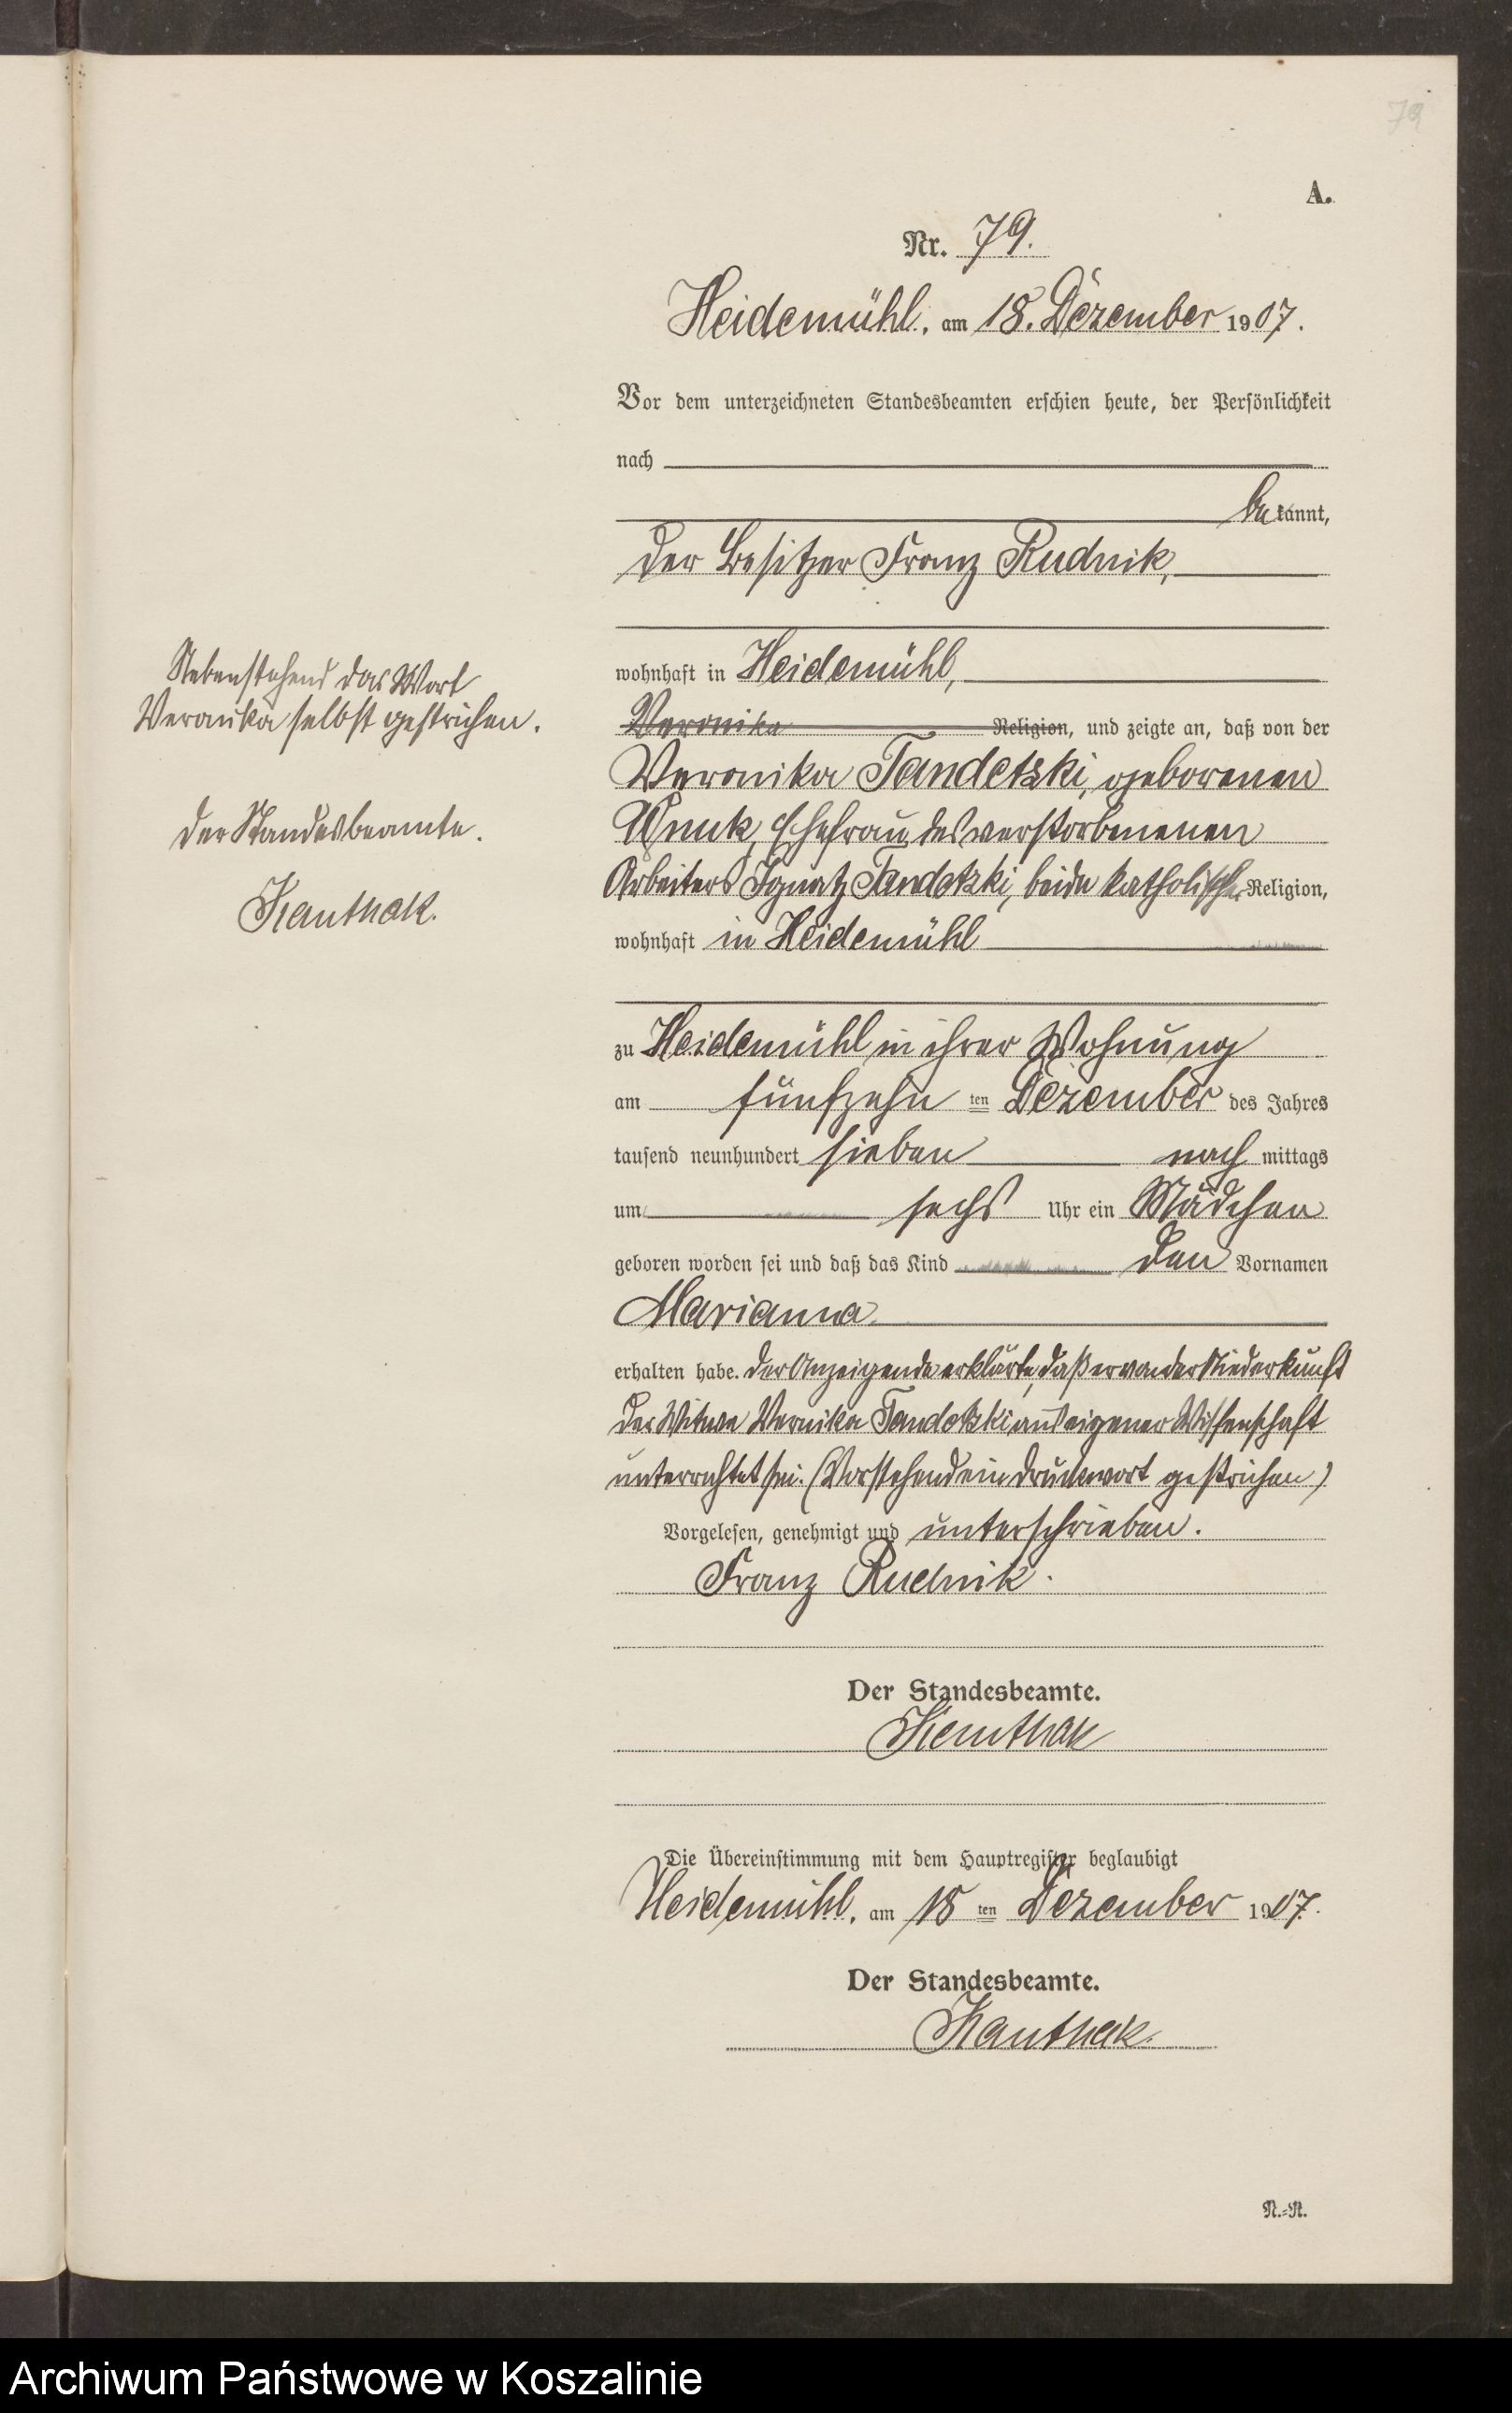 79
A.
Nr. 79.
Heidemühl, am 18. Dezember 1907.
Vor dem unterzeichneten Standesbeamten erschien heute, der Persönlichkeit
nach
bekannt,
der Besitzer Franz Rudnik,
wohnhaft in Heidemühl,
Veronika Religion, und zeigte an, daß von der
Veronika Tandetzki, geborenen
Wnuk, Ehefrau des verstorbenenen
Arbeiters Ignatz Tandetzki, beide katholischer Religion,
wohnhaft in Heidemühl
zu Heidemühl in ihrer Wohnung
am fünfzehn ten Dezember des Jahres
tausend neunhundert sieben nach mittags
um sechs Uhr ein Mädchen
geboren worden sei und daß das Kind den Vornamen
Marianna
erhalten habe. Der Anzeigende erklärte, daß er von der Niederkunft
der Witwe Vernika Tandetzki aus eigener Wissenschaft
unterrichtet sei. (Vorstehend ein Druckwort gestrichen)
Vorgelesen, genehmigt und unterschrieben.
Franz Rudnik.
Der Standesbeamte.
Kanthak
Die Übereinstimmung mit dem Hauptregister beglaubigt
Heidemühl, am 18 ten Dezember 1907.
Der Standesbeamte.
Kanthak.
N.=R.
Nebenstehend das Wort
Veronika selbst gestrichen.
Der Standesbeamte.
Kanthak.
Archiwum Państwowe w Koszalinie